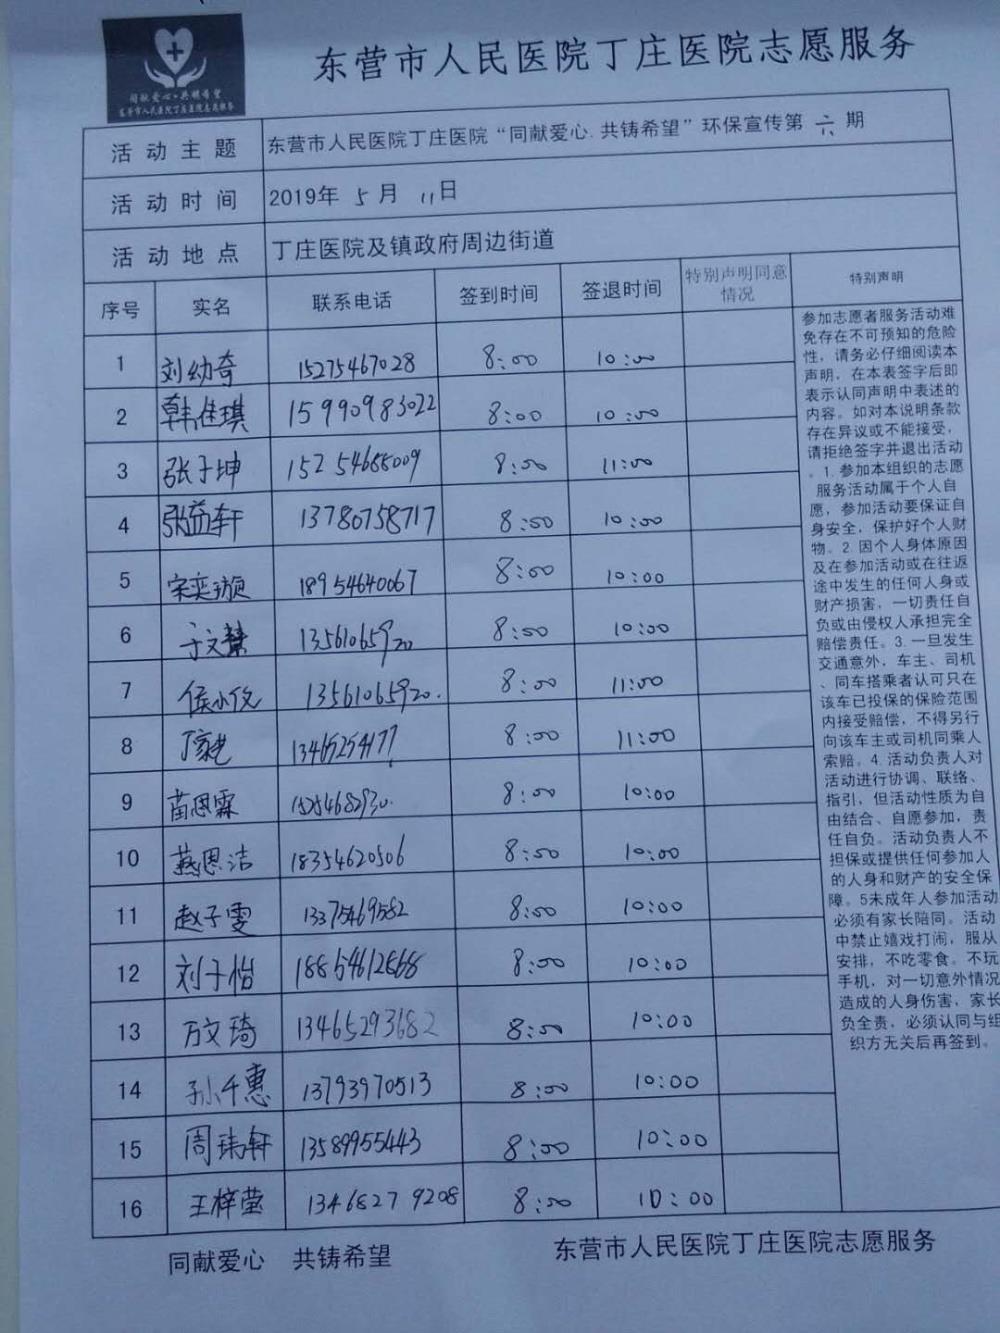 同献爱心·共铸希望
东营市人民医院丁庄医院志愿服务
东营市人民医院丁庄医院志愿服务
活动主题 东营市人民医院丁庄医院“同献爱心.共铸希望”环保宣传第 六 期
活动时间 2019年 5 月 11 日
活动地点 丁庄医院及镇政府周边街道
序号 实名 联系电话 签到时间 签退时间 特别声明同意情况 特别声明
1 刘幼奇 15275467028 8:00 10:00
2 韩佳琪 15990983022 8:00 10:00
3 张子坤 15254688009 8:00 11:00
4 张益轩 13780758717 8:00 10:00
5 宋奕 18954640067 8:00 10:00
6 于文慧 13561065920 8:00 10:00
7 侯小 13561065920. 8:00 11:00
8 丁 13465254177 8:00 11:00
9 苗恩霖 8:00 10:00
10 燕恩洁 18354620506 8:00 10:00
11 赵子雯 13375469582 8:00 10:00
12 刘子怡 18854612868 8:00 10:00
13 万文琦 13465293682 8:00 10:00
14 孙千惠 13793970513 8:00 10:00
15 周玮轩 13589955443 8:00 10:00
16 王梓莹 13468279208 8:00 10:00
参加志愿者服务活动难
免存在不可预知的危险
性，请务必仔细阅读本
声明，在本表签字后即
表示认同声明中表述的
内容。如对本说明条款
存在异议或不能接受，
请拒绝签字并退出活动
。1.参加本组织的志愿
服务活动属于个人自
愿，参加活动要保证自
身安全，保护好个人财
物。2.因个人身体原因
及在参加活动或在往返
途中发生的任何人身或
财产损害，一切责任自
负或由侵权人承担完全
赔偿责任。3.一旦发生
交通意外，车主、司机
、同车搭乘者认可只在
该车已投保的保险范围
内接受赔偿，不得另行
向该车主或司机同乘人
索赔。4.活动负责人对
活动进行协调、联络、
指引，但活动性质为自
由结合、自愿参加，责
任自负。活动负责人不
担保或提供任何参加人
的人身和财产的安全保
障。5未成年人参加活动
必须有家长陪同。活动
中禁止嬉戏打闹，服从
安排，不吃零食。不玩
手机，对一切意外情况
造成的人身伤害，家长
负全责，必须认同与组
织方无关后再签到。
同献爱心 共铸希望
东营市人民医院丁庄医院志愿服务